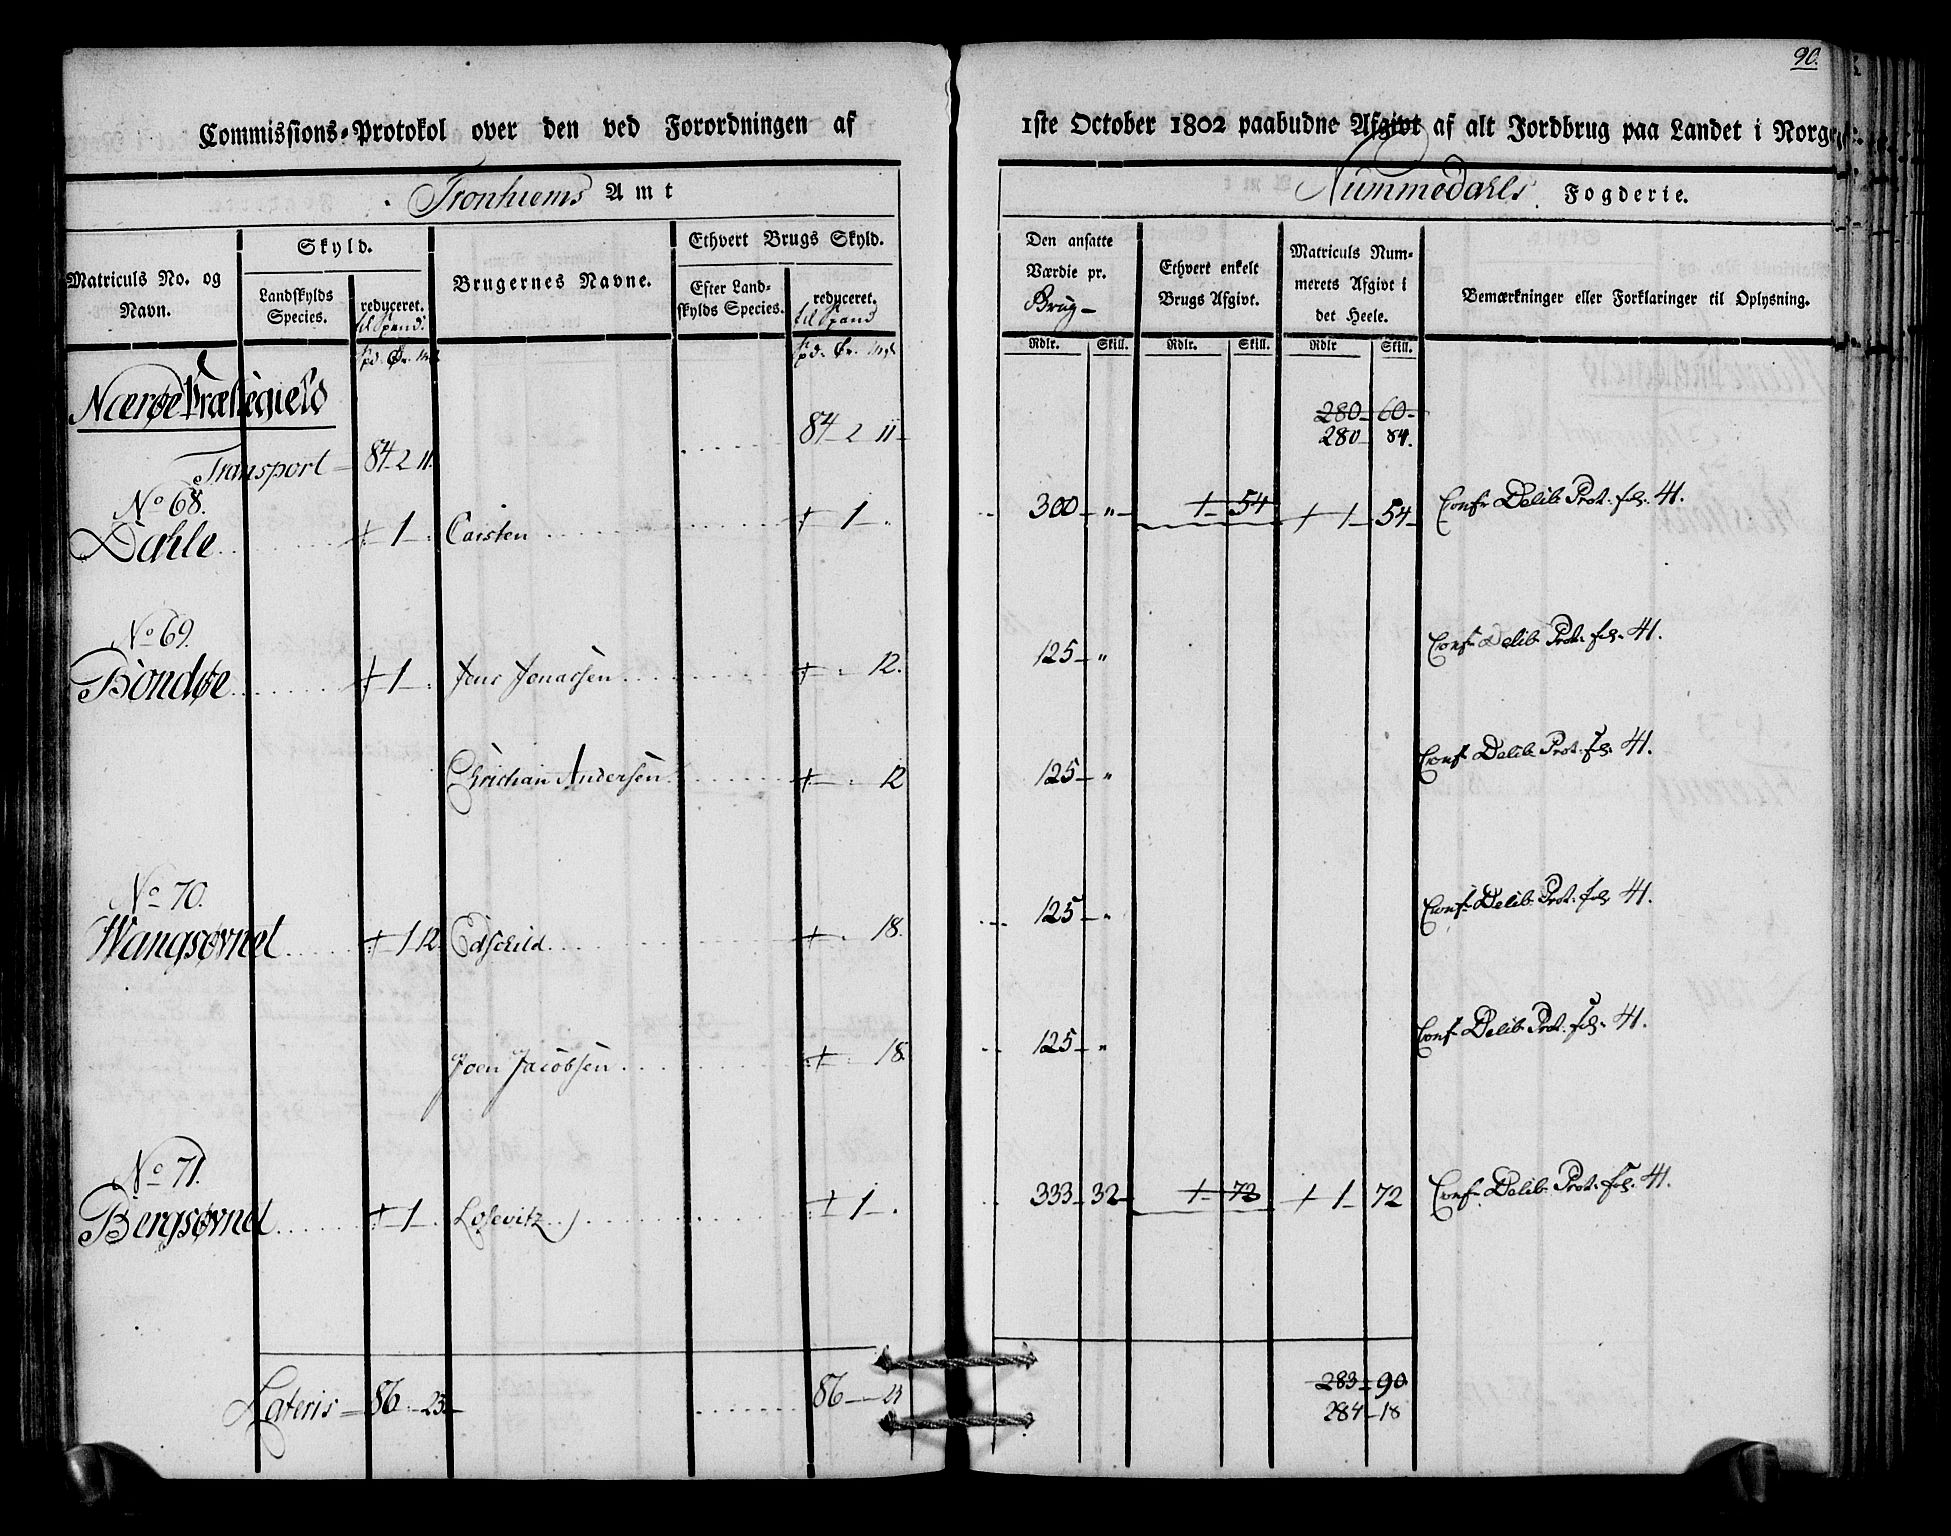 90.
Commissions-Protokol over den ved Forordningen af 1ste October 1802 paabudne Afgivt af alt Jordbrug paa Landet i Norge
Tronhiems Amt
Nummedahls Fogderie.
Matriculs No. og Navn.
Skyld.
Landskylds Species.
reduceret. til Spand.
Brugernes Navne.
Ethvert Brugs Skyld.
Efter Landskylds Species.
reduceret. til Spand
Den ansatte Værdie pr. Brug
Ethvert enkelt Brugs Afgivt.
Matriculs Nummerets Afgivt i det Heele.
Bemærkninger eller Forklaringer til Oplysning.
Rdlr. Skill. Rdlr. Skill. Rdlr Skill.
Nærøe Præstegield
280 60
84 2 11 280 84.
Transport 84 2 11.
No 68.
Dahle 1 Carsten 1 300 " 1 54 1 54 Conf Delib Prot. fol. 41.
No 69.
Bondøe 1 Jens Jonassen 12. 125 " Conf Delib Prot. fol. 41.
Christian Andersen 12 125 " Conf Delib Prot. fol. 41.
No 70.
Wangsøvnet 1 12. Edschild 18. 125 " Conf Delib Prot. fol. 41.
Joen Jacobsen 18. 125 " Conf Delib Prot. fol. 41.
No 71.
Bergsøvnet 1 1 333 32 1 73 1 72 Conf Delib Prot. fol. 41.
283 90
Lateris 86 23 86 23 284 18